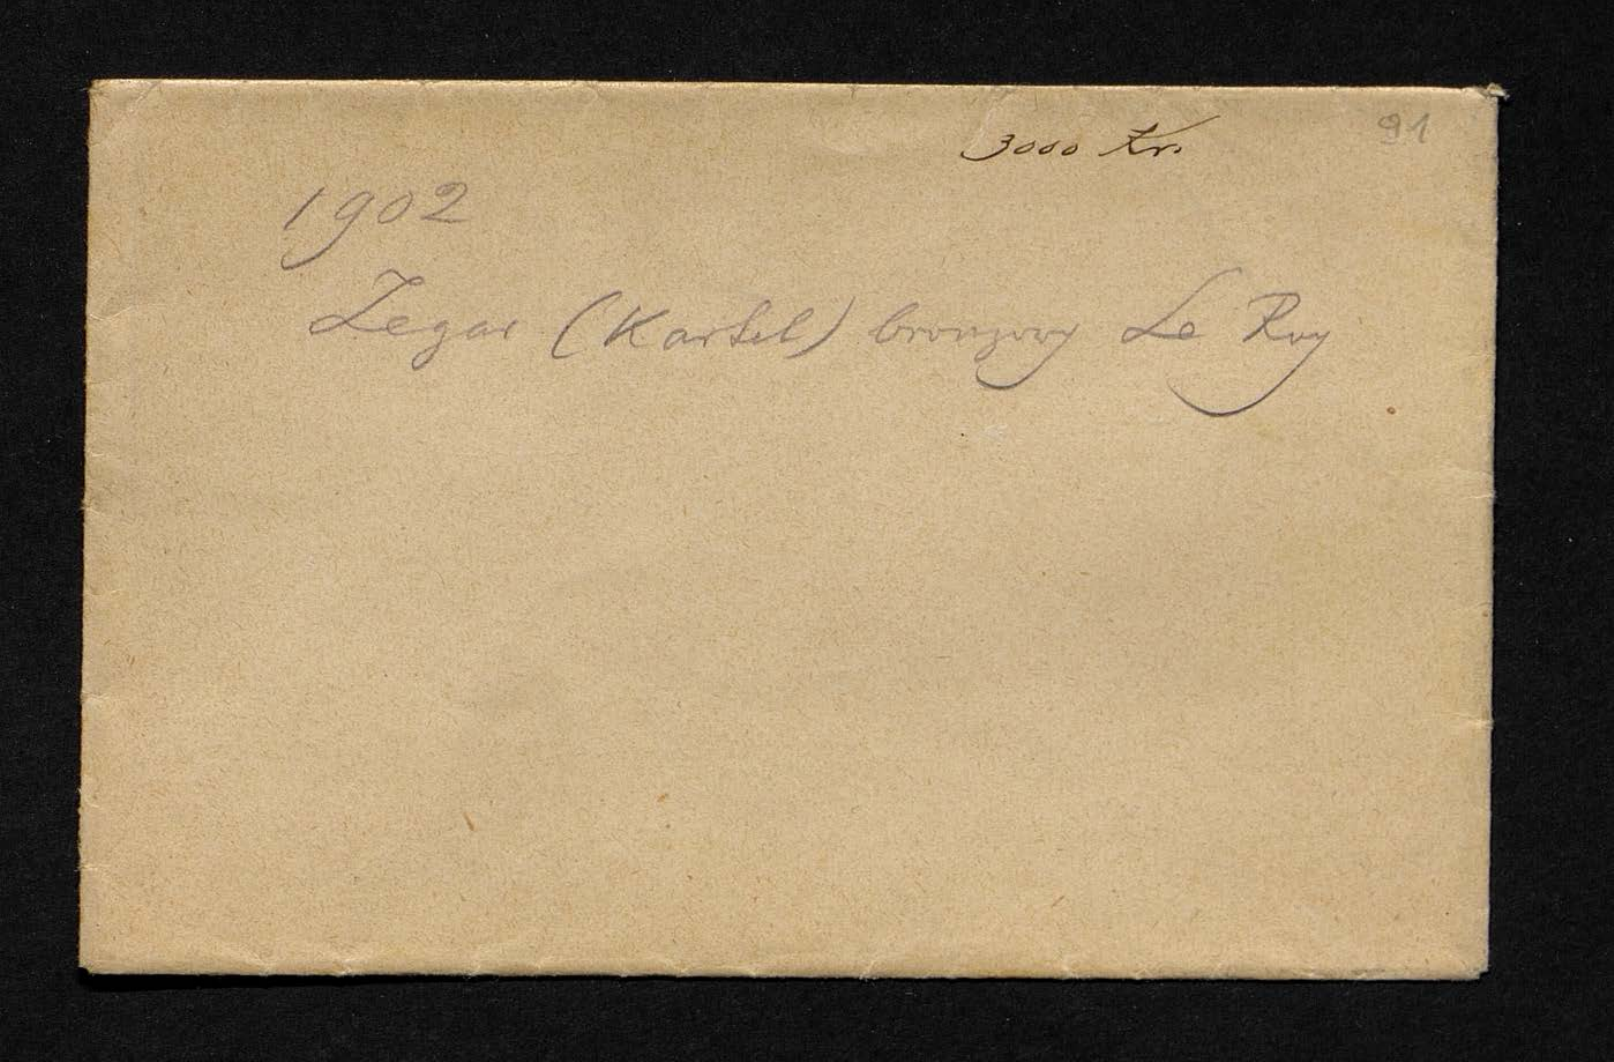 3000 Kr. 91
1902
Zegar (Kartel) bronzowy Le Roy